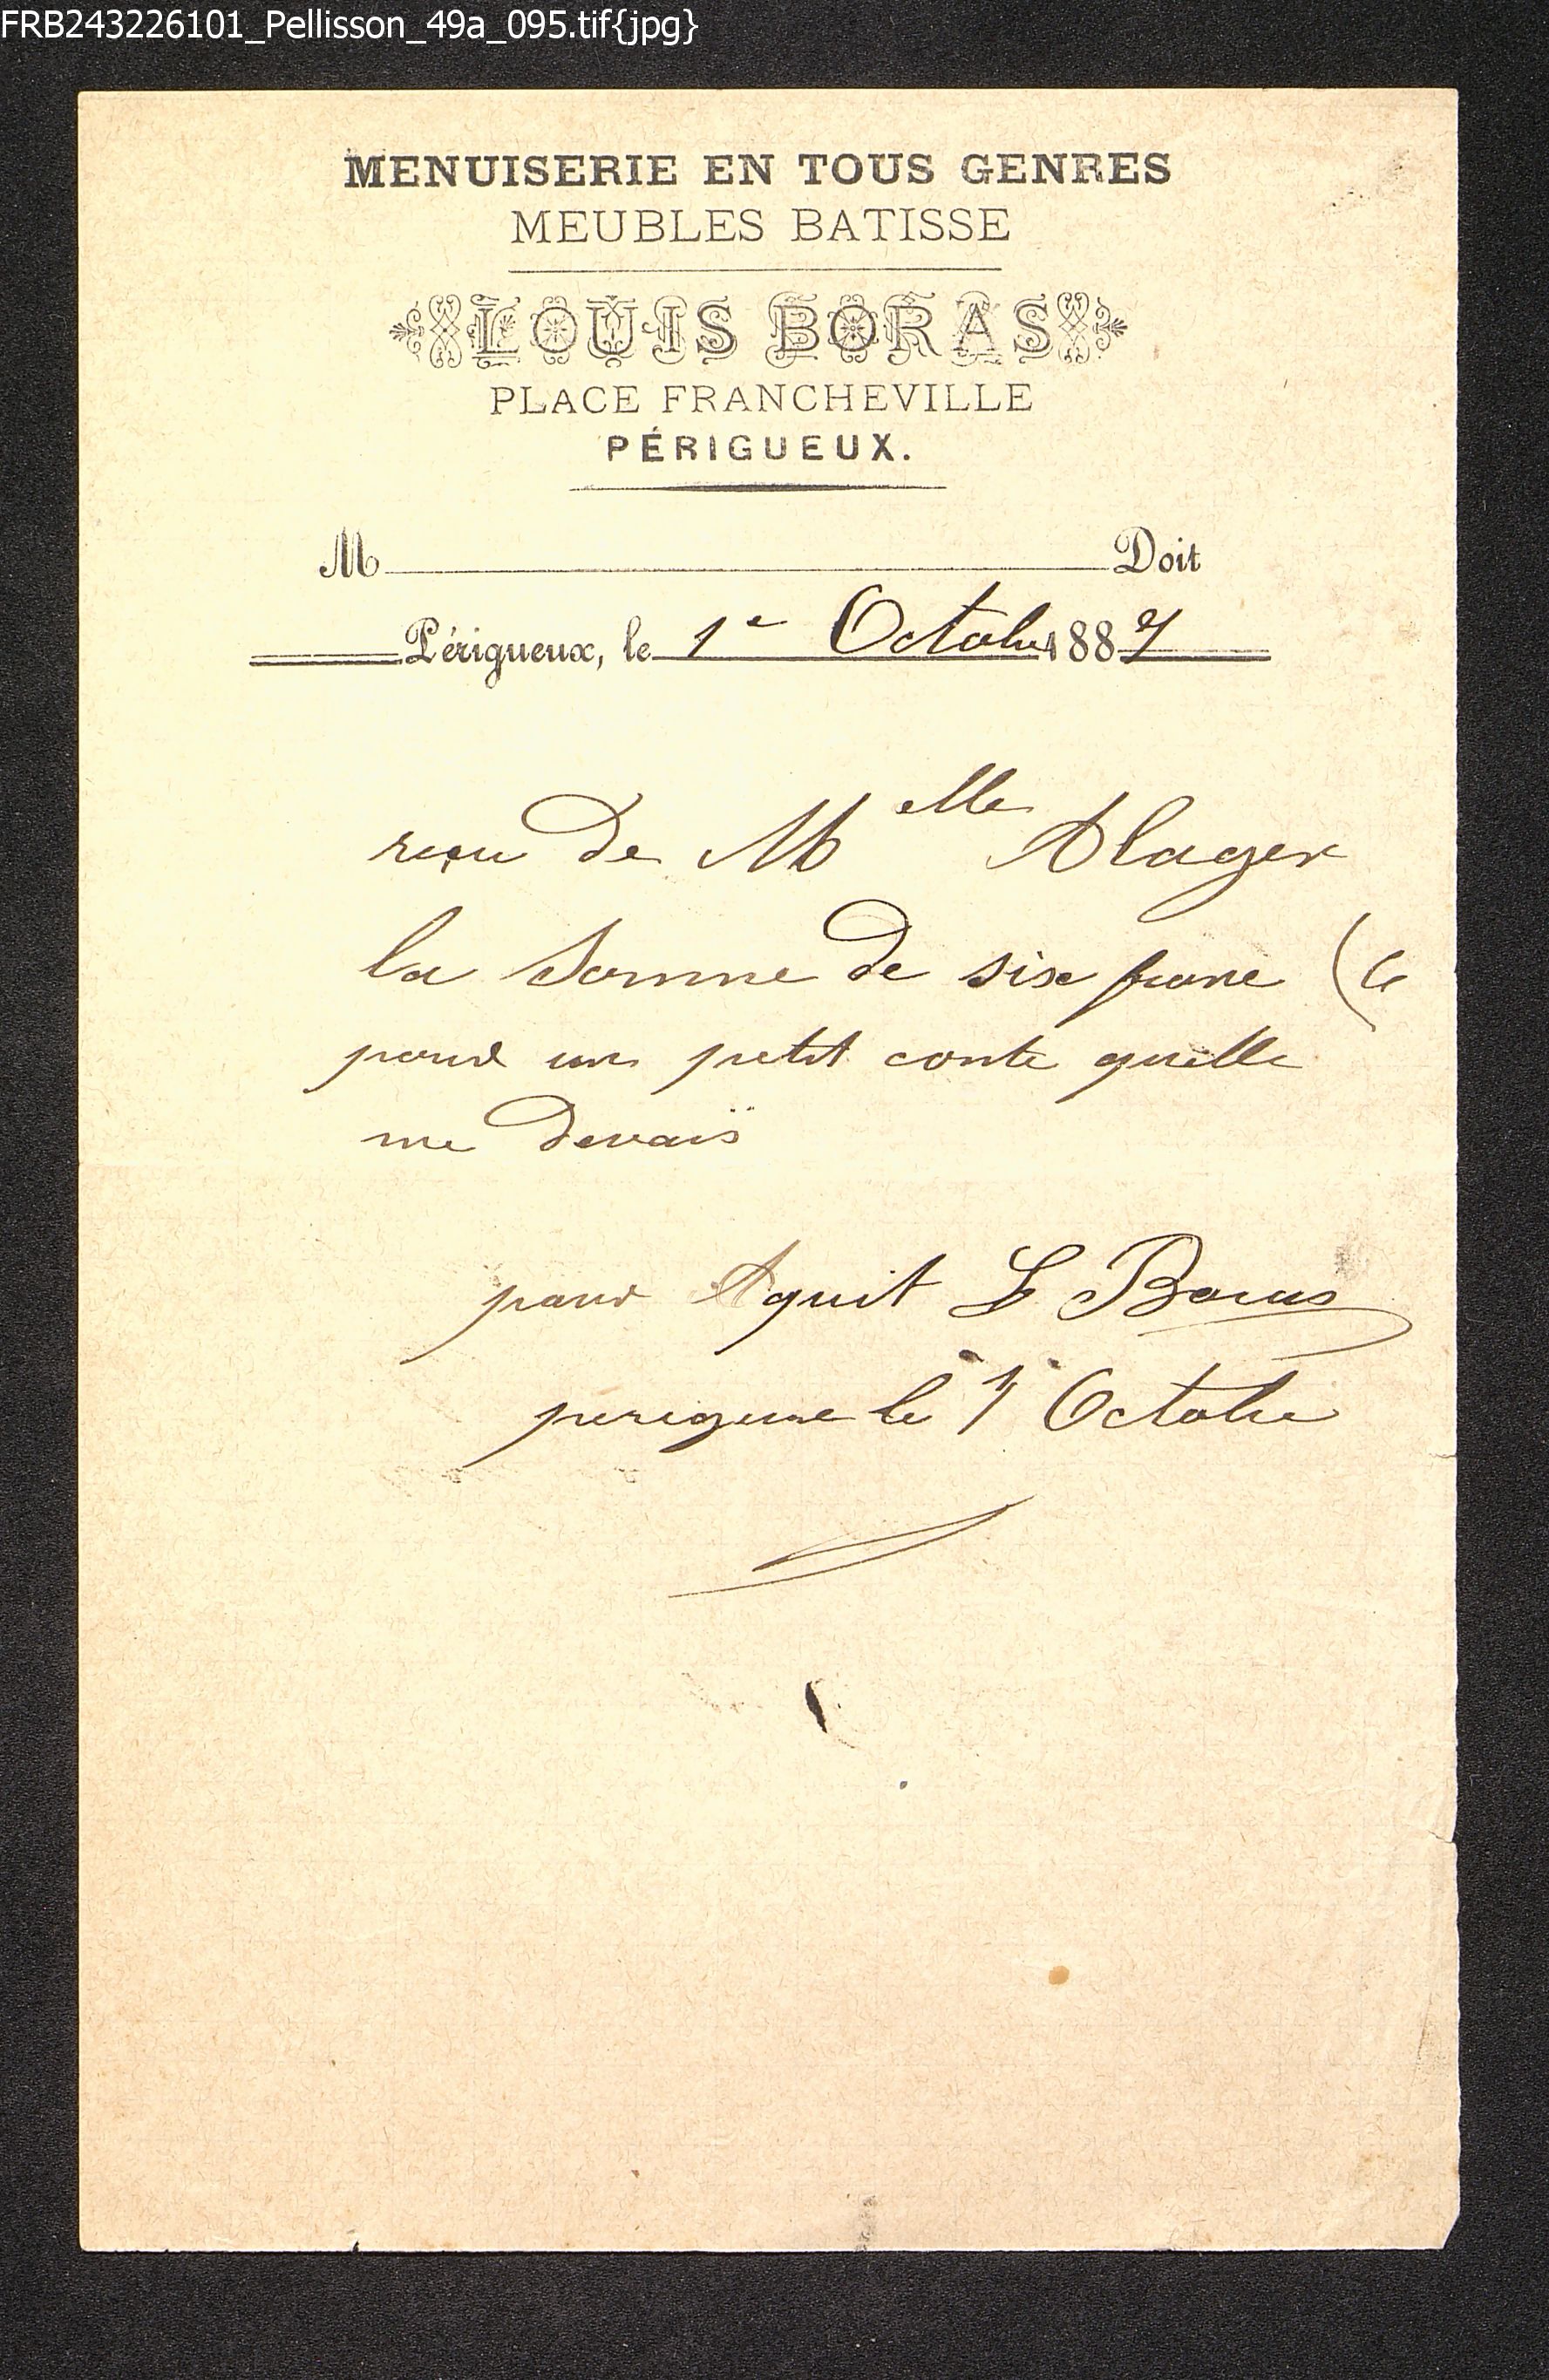 FRB243226101_Pellisson_49a_095.tif{jpg}
MENUISERIE EN TOUS GENRES
MEUBLES BATISSE
LOUIS BORAS
PLACE FRANCHEVILLE
PÉRIGUEUX.
M Doit
Périgueux, le 1e Octobre 1887
reçu de Melle Alager
la somme de six franc (6
pour un petit conte quelle
me devais
pour Aquit L Boras
perigueue le 1 Octobre